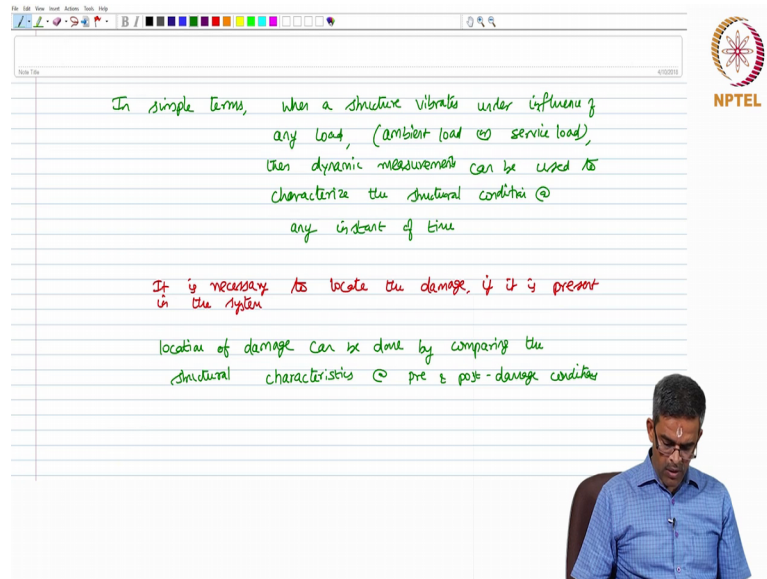 File Edit View Insert Actions Tools Help
B I
Note Title
4/10/2018
NPTEL
In simple terms, when a structure vibrates under influence of
any load, (ambient load or service load),
then dynamic measurements can be used to
characterize the structural condition @
any instant of time
It is necessary to locate the damage, if it is present
in the system
location of damage can be done by comparing the
structural characteristics @ pre & post-damage conditions